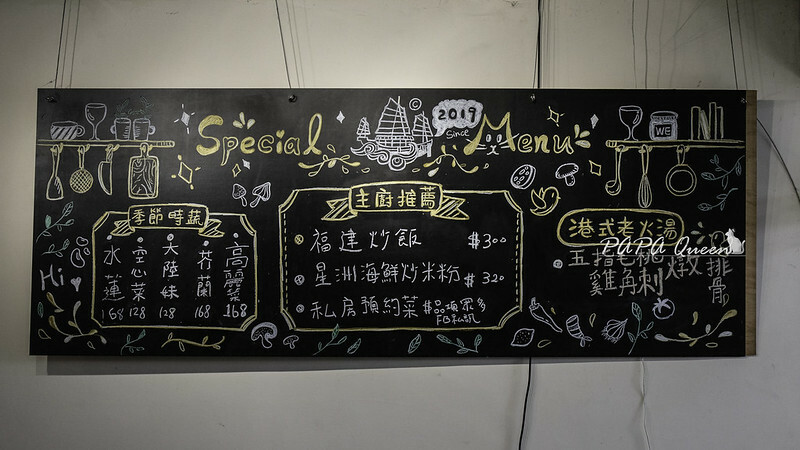 Special Menu
©
2019
Since
WE
Hi
季節時蔬
水蓮 168
空心菜 128
大陸妹 128
芥蘭 168
高麗菜 168
主廚推薦
福建炒飯 $300
星洲海鮮炒米粉 $320
私房預約菜 #品項眾多
FB私訊
港式老火湯
五指毛桃
雞角刺
燉排骨
PAPA Queen